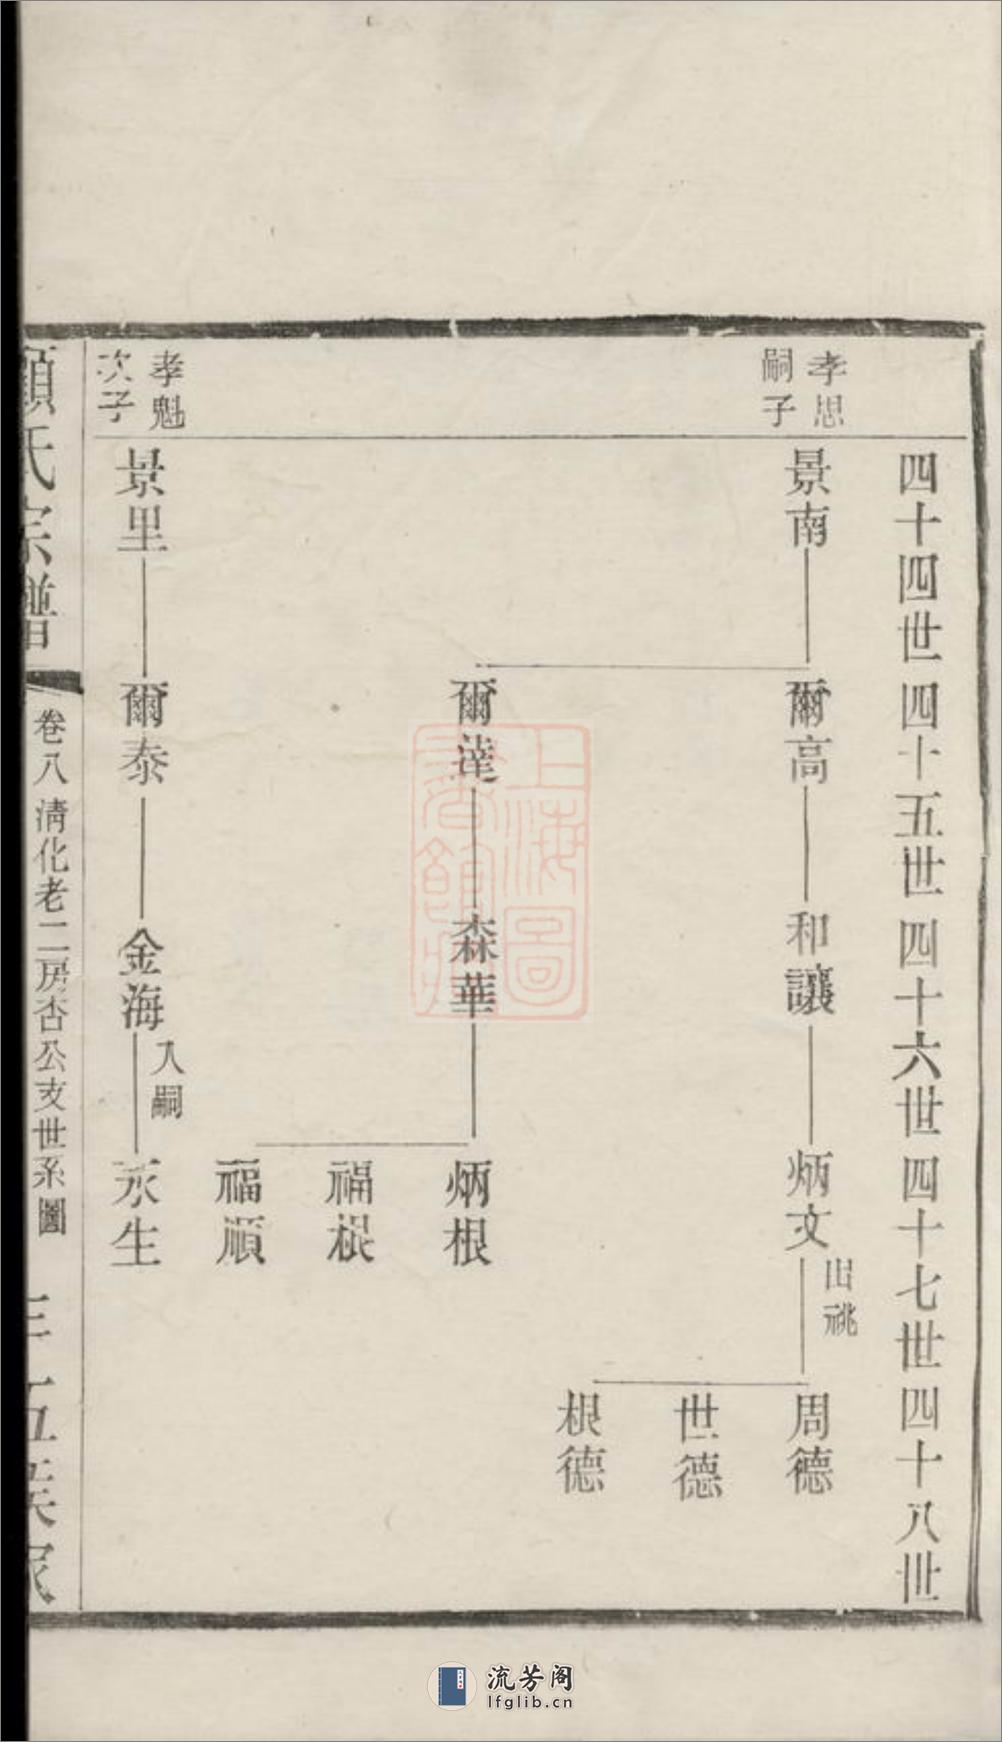 四十四世 四十五世 四十六世 四十七世 四十八世
孝思
嗣子
景南
爾高
和讓
炳文
出祧
周德
世德
根德
爾達
森華
炳根
福根
福順
孝魁
次子
景里
爾泰
金海
入嗣
永生
顧氏宗譜
卷八 清化老二房杏公支世系圖
上海圖
書館藏
流芳阁
lfglib.cn